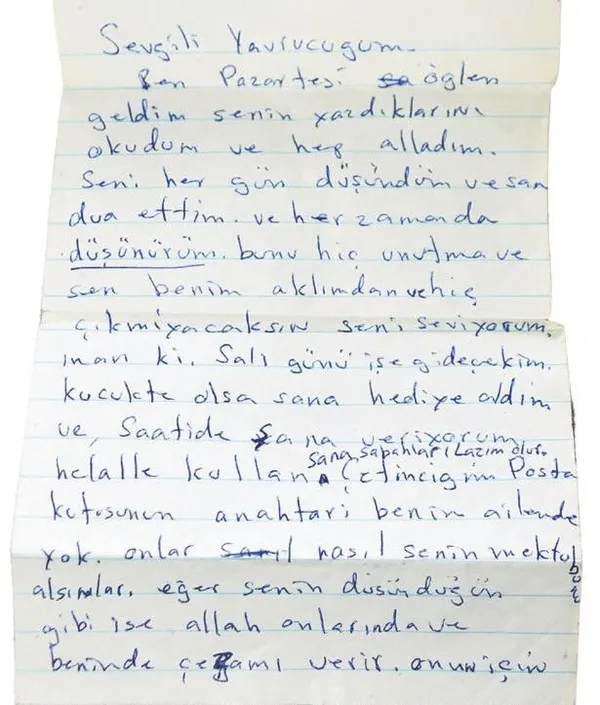 Sevgili Yavrucuğum.
Ben Pazartesi öğlen
geldim senin yazdıklarını
okudum ve hep alladım.
Seni her gün düşündüm ve san
dua ettim. ve her zamanda
düşünürüm. bunu hiç unutma ve
sen benim aklımdan ve hiç
çıkmıyacaksın seni seviyorum.
inan ki. Salı günü işe gideçekim.
kucukte olsa sana hediye aldim
ve, Saatide sana veriyorum
sana sapahları Lazım olur.
helalle kullan. Çetinciğim Posta
kutusunun anahtari benim ailende
yok. onlar nasıl senin mektubuz
alsınlar. eğer senin düşündüğün
gibi ise allah onlarında ve
beninde çezamı verir. onun için